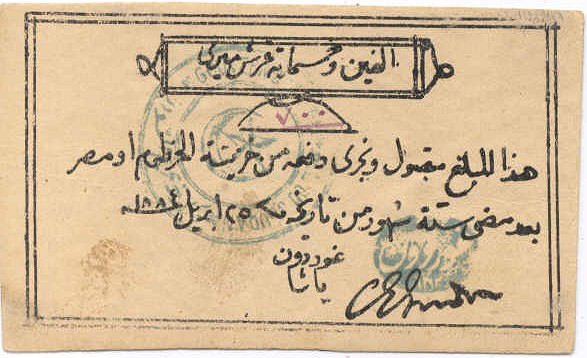 الفين وخمسماية غرش ميري
٧٠٠
هذا المبلغ مقبول وتجرى دفعه من خزينة الخرطوم او مصر
بعد مضى ستة شهور من تاريخه ٢٥ ابريل ١٨٨٤
غوردون
باشا